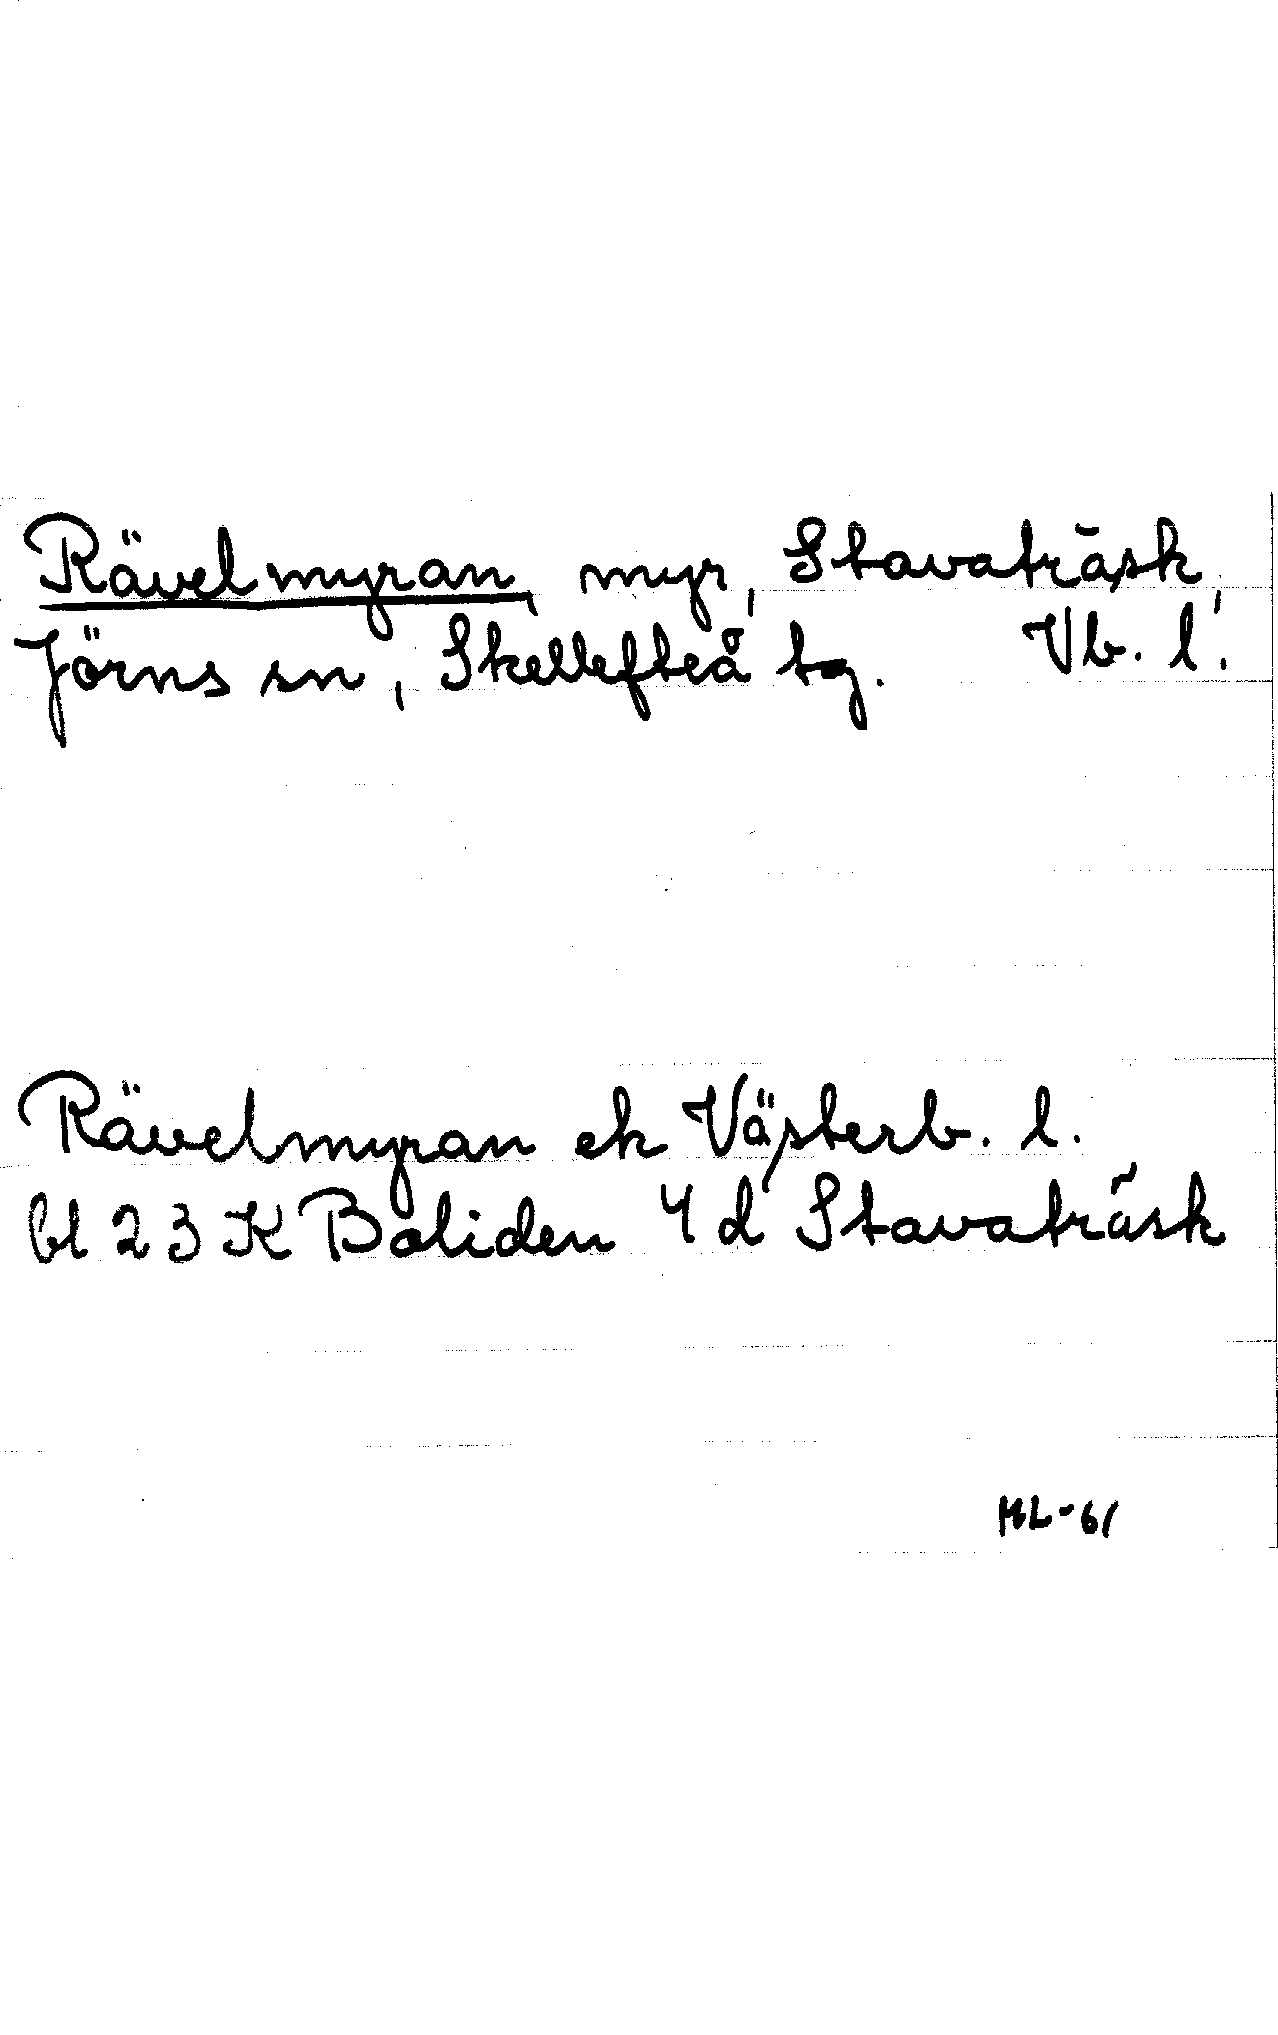 Rävelmyran, myr, Stavaträsk,
Jörns sn, Skellefteå tg. Vb. l.
Rävelmyran ek Västerb. l.
bl 23 K Boliden 4 d Stavaträsk